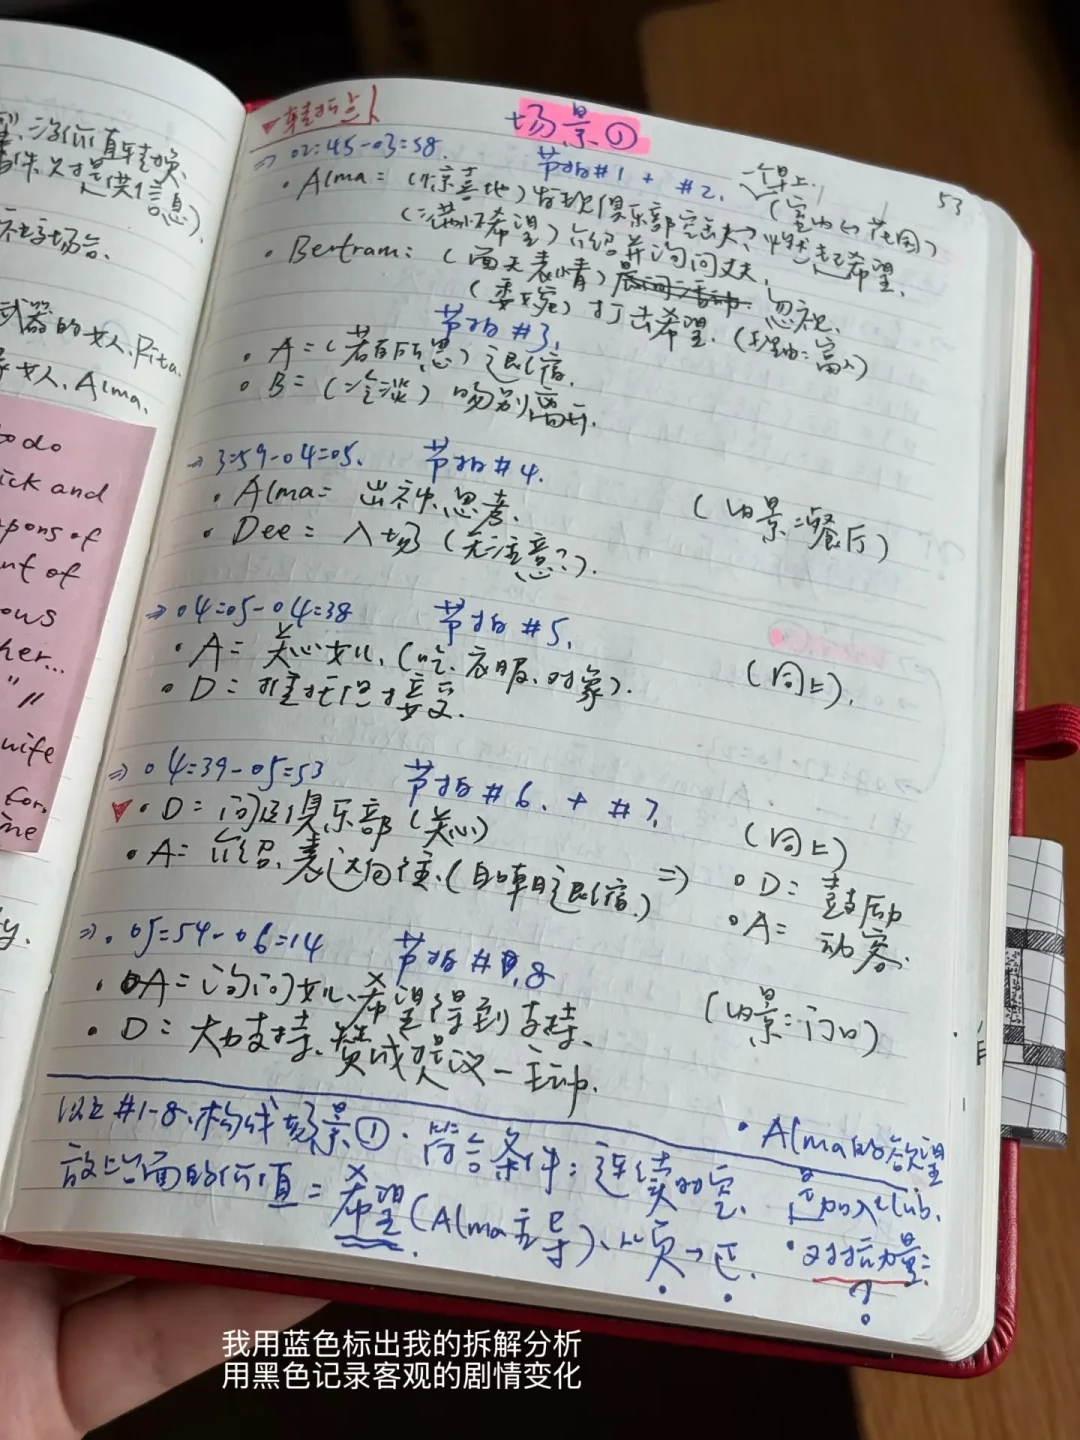 直转换
供信息).
武器的女人, Rita.
女人, Alma.
to do
ick and
pons of
nt of
ous
her...
"
wife
for
me
y.
▼转折点
场景①
53
⇒ 02:45-03:58.
节拍#1 + #2.
一个早上.
(室内的花园)
• Alma = (惊喜地) 发现俱乐部 → 燃起希望
(满怀希望) 介绍并询问丈夫.
• Bertram: (面无表情) 忽视.
(委婉) 打击希望.
节拍#3.
• A = (若有所思) 退缩.
• B = (冷淡) 吻别离开.
→ 3:59-04:05. 节拍#4.
• Alma = 出神.思考. (场景:餐厅)
• Dee = 入场 (无注意?).
⇒ 04:05-04:38 节拍#5.
• A = 关心女儿, (吃.衣服.对象). (同上).
• D = 推托但接受.
⇒ 04:39-05:53 节拍#6. + #7.
▼ • D = 问及俱乐部 (关心) (同上)
• A = 介绍.表达向往.(自嘲退缩.) ⇒ • D = 鼓励
• A = 动容.
⇒. 05:54-06:14 节拍#8
• A = 询问女儿.希望得到支持. (场景:门口)
• D = 大力支持.赞成提议-主动.
以上#1-8.构成场景①. 符合条件: 连续时空.
故台面的价值 = 希望 (Alma主导). 从负→正.
• Alma的欲望
是加入club.
• 对抗力量:
?
我用蓝色标出我的拆解分析
用黑色记录客观的剧情变化